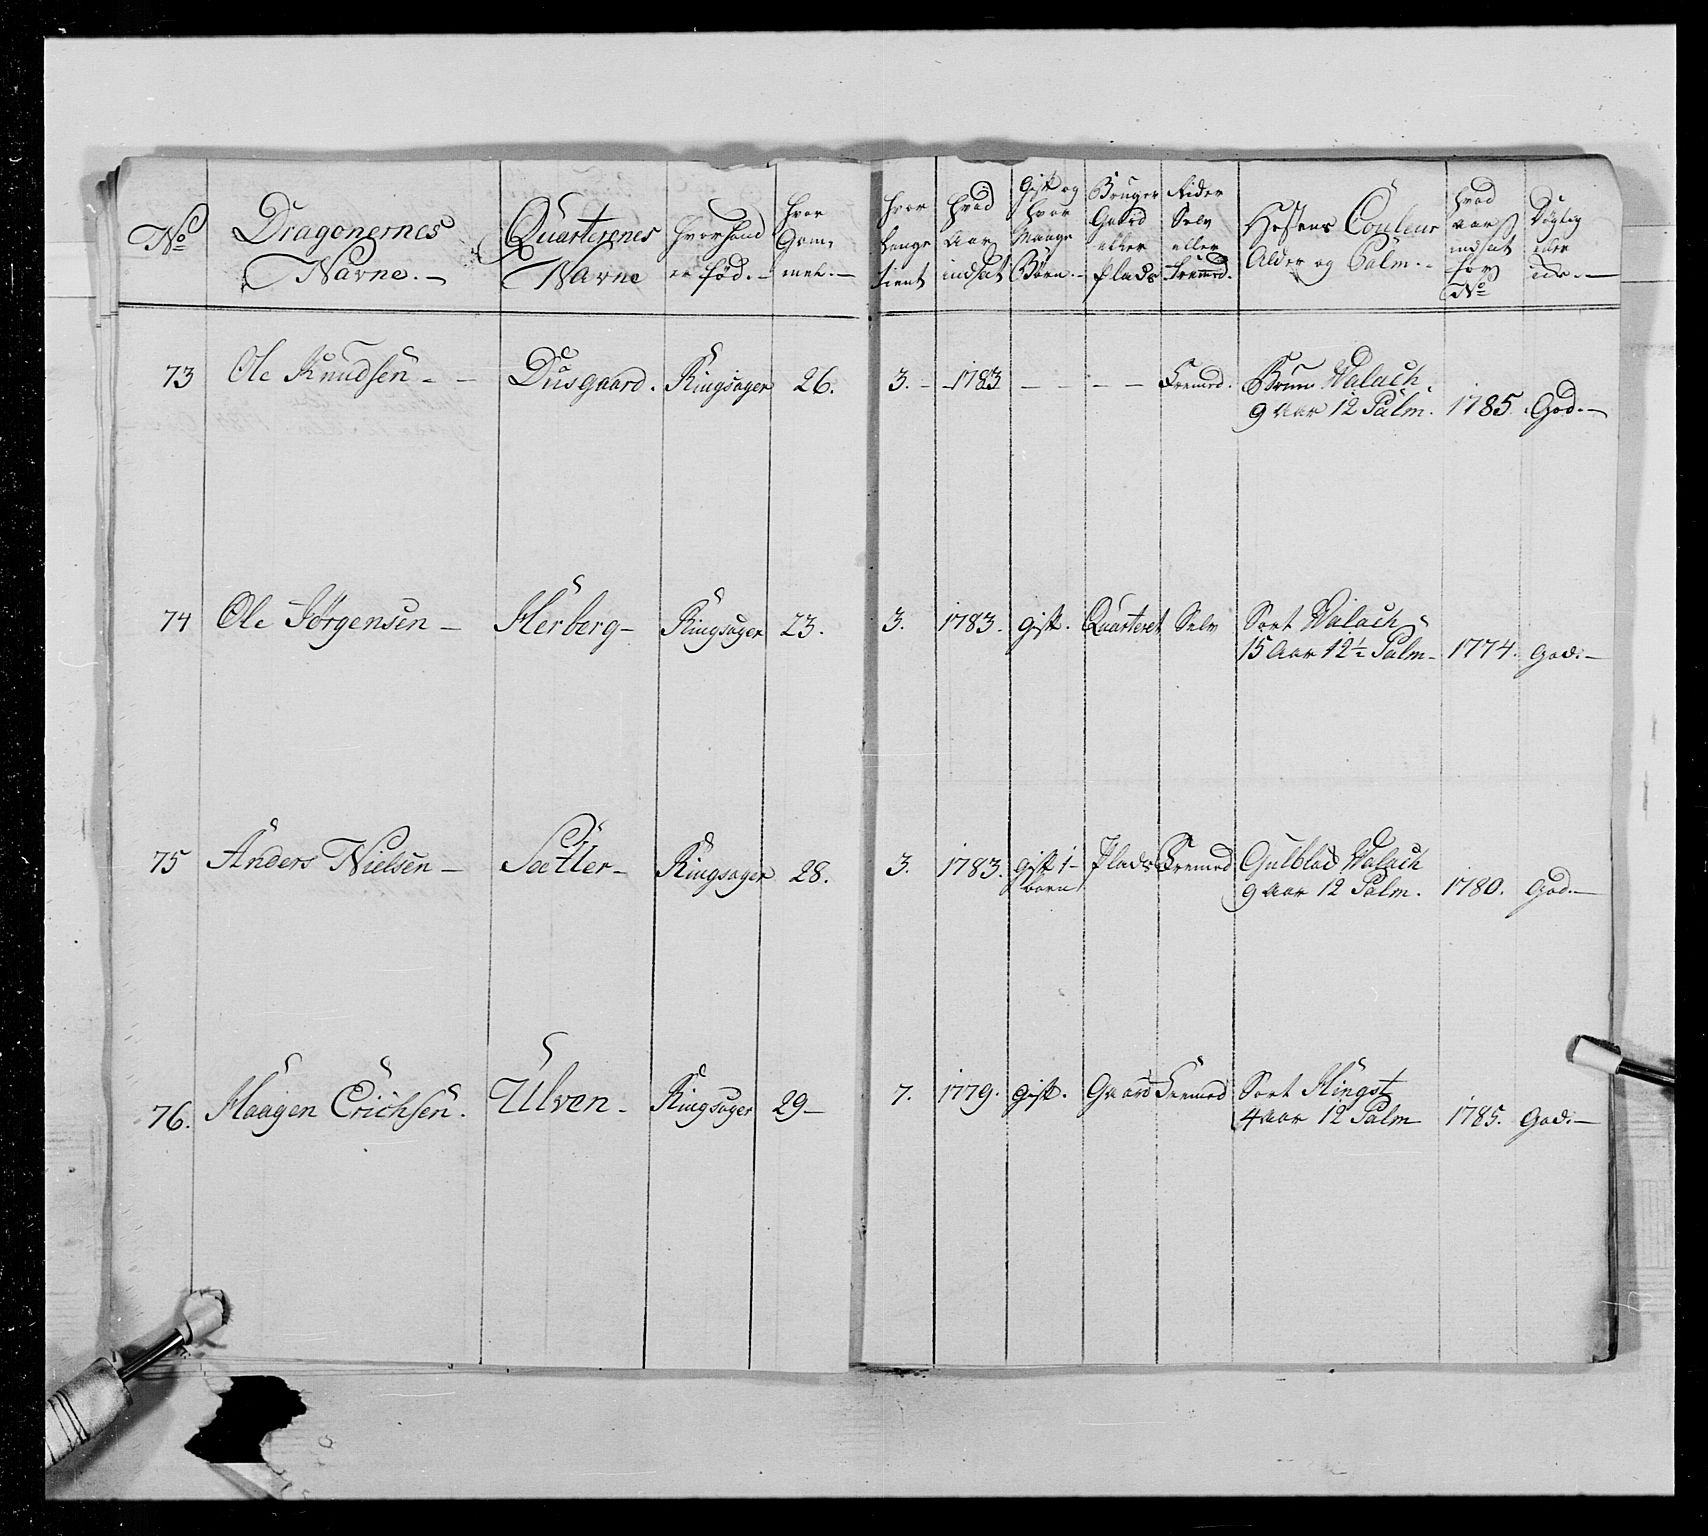 No
Dragonernes Navne.
Quarterenes Navne
Hvor hand er fød.
Hvor Gammel.
Hvor Længe tient
Hvad Aar indsat
Gift og hvor Mange Børn.
Bruger Gaard eller Plads
Rider Selv eller Fremed.
Hestens Couleur Alder og Palm.
Hvad Aar indsat for No
Dygtig eller
73 Ole Knudsen - - Dusgaard. Ringsager 26. 3. - - 1783 - - - - Fremed. Bruun Valach.
9 Aar 12 Palm. 1785. God. -
74 Ole Jørgensen - Herberg - Ringsager 23. 3. 1783. gift. Quarteret Selv Sort Valach
15 Aar 12½ Palm - 1774. god. -
75 Anders Nielsen - Sætter - Ringsager 28. 3. 1783. gift 1 Plads Fremed Gulblad Valach
barn 9 Aar 12 Palm. 1780. god. -
76. Haagen Erichsen. Ulven - Ringsager 29 - 7. 1779. gift. Gaard Fremed Sort Hingst
4 Aar 12 Palm 1785. God. -